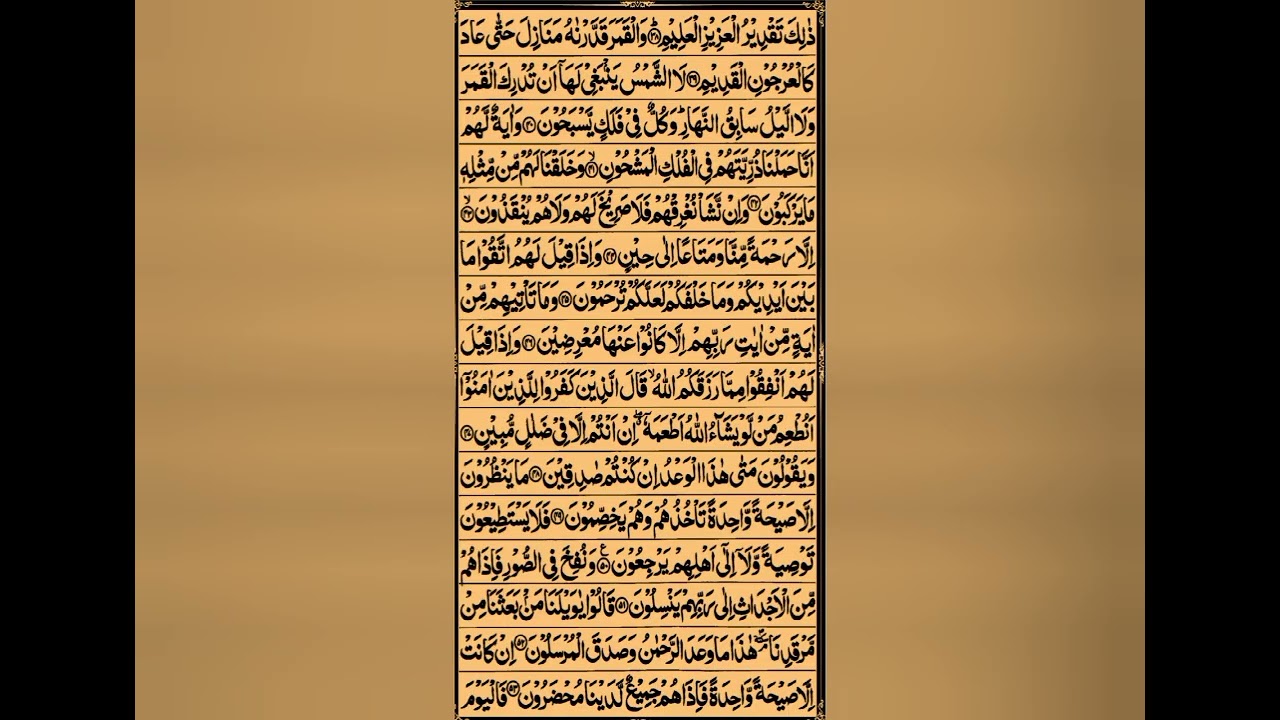 ذٰلِكَ تَقْدِيْرُ الْعَزِيْزِ الْعَلِيْمِؕ‏﴿۳۸﴾ وَالْقَمَرَ قَدَّرْنٰهُ مَنَازِلَ حَتّٰى عَادَ
كَالْعُرْجُوْنِ الْقَدِيْمِ ﴿۳۹﴾ لَا الشَّمْسُ يَنْۢبَغِىْ لَهَاۤ اَنْ تُدْرِكَ الْقَمَرَ
وَلَا الَّيْلُ سَابِقُ النَّهَارِؕ وَكُلٌّ فِىْ فَلَكٍ يَّسْبَحُوْنَ ﴿۴۰﴾ وَاٰيَةٌ لَّهُمْ
اَنَّا حَمَلْنَا ذُرِّيَّتَهُمْ فِى الْفُلْكِ الْمَشْحُوْنِۙ ﴿۴۱﴾ وَخَلَقْنَا لَهُمْ مِّنْ مِّثْلِهٖ
مَا يَرْكَبُوْنَ ﴿۴۲﴾ وَاِنْ نَّشَاْ نُغْرِقْهُمْ فَلَا صَرِيْخَ لَهُمْ وَلَا هُمْ يُنْقَذُوْنَۙ ﴿۴۳﴾
اِلَّا رَحْمَةً مِّنَّا وَمَتَاعًا اِلٰى حِيْنٍ ﴿۴۴﴾ وَاِذَا قِيْلَ لَهُمُ اتَّقُوْا مَا
بَيْنَ اَيْدِيْكُمْ وَمَا خَلْفَكُمْ لَعَلَّكُمْ تُرْحَمُوْنَ ﴿۴۵﴾ وَمَا تَاْتِيْهِمْ مِّنْ
اٰيَةٍ مِّنْ اٰيٰتِ رَبِّهِمْ اِلَّا كَانُوْا عَنْهَا مُعْرِضِيْنَ ﴿۴۶﴾ وَاِذَا قِيْلَ
لَهُمْ اَنْفِقُوْا مِمَّا رَزَقَكُمُ اللّٰهُۙ قَالَ الَّذِيْنَ كَفَرُوْا لِلَّذِيْنَ اٰمَنُوْۤا
اَنُطْعِمُ مَنْ لَّوْ يَشَآءُ اللّٰهُ اَطْعَمَهٗۤۖ اِنْ اَنْتُمْ اِلَّا فِىْ ضَلٰلٍ مُّبِيْنٍ ﴿۴۷﴾
وَيَقُوْلُوْنَ مَتٰى هٰذَا الْوَعْدُ اِنْ كُنْتُمْ صٰدِقِيْنَ ﴿۴۸﴾ مَا يَنْظُرُوْنَ
اِلَّا صَيْحَةً وَّاحِدَةً تَاْخُذُهُمْ وَهُمْ يَخِصِّمُوْنَ ﴿۴۹﴾ فَلَا يَسْتَطِيْعُوْنَ
تَوْصِيَةً وَّلَاۤ اِلٰٓى اَهْلِهِمْ يَرْجِعُوْنَ ﴿۵۰﴾ وَنُفِخَ فِى الصُّوْرِ فَاِذَا هُمْ
مِّنَ الْاَجْدَاثِ اِلٰى رَبِّهِمْ يَنْسِلُوْنَ ﴿۵۱﴾ قَالُوْا يٰوَيْلَنَا مَنْۢ بَعَثَنَا مِنْ
مَّرْقَدِنَا هٰذَا مَا وَعَدَ الرَّحْمٰنُ وَصَدَقَ الْمُرْسَلُوْنَ ﴿۵۲﴾ اِنْ كَانَتْ
اِلَّا صَيْحَةً وَّاحِدَةً فَاِذَا هُمْ جَمِيْعٌ لَّدَيْنَا مُحْضَرُوْنَ ﴿۵۳﴾ فَالْيَوْمَ